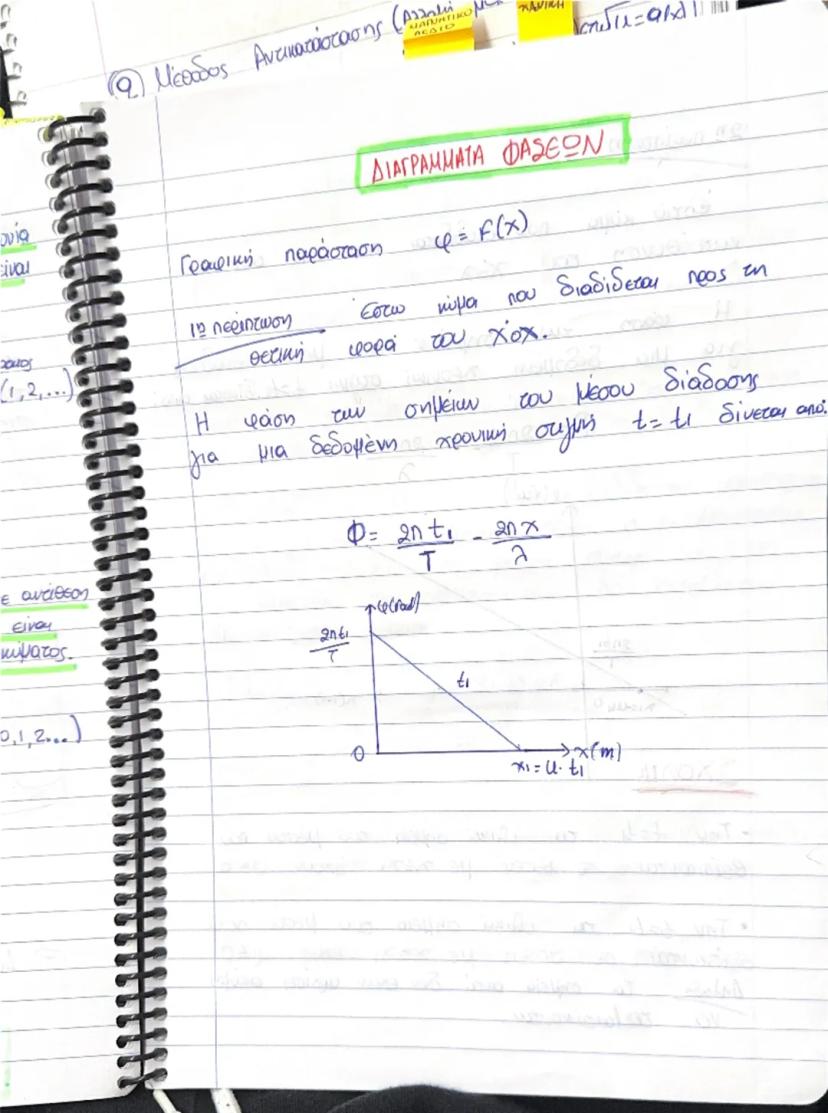 (9) Μέθοδος Αντικατάστασης (Αλλαγή
ΜΑΓΝΗΤΙΚΟ
ΠΕΔΙΟ
ΔΙΑΓΡΑΜΜΑΤΑ ΦΑΣΕΩΝ
Γραφική παράσταση φ = F(x)
1η περίπτωση Έστω κύμα που διαδίδεται προς τη
θετική φορά του x'οx.
Η φάση των σημείων του μέσου διάδοσης
για μια δεδομένη χρονική στιγμή t = t1 δίνεται από:
Φ = 2πt1/T - 2πx/λ
φ(rad)
2πt1/T
t1
0
x(m)
x1 = u · t1
είναι
(1,2,...)
ε αντίθεση
είναι
κύματος.
0,1,2...)